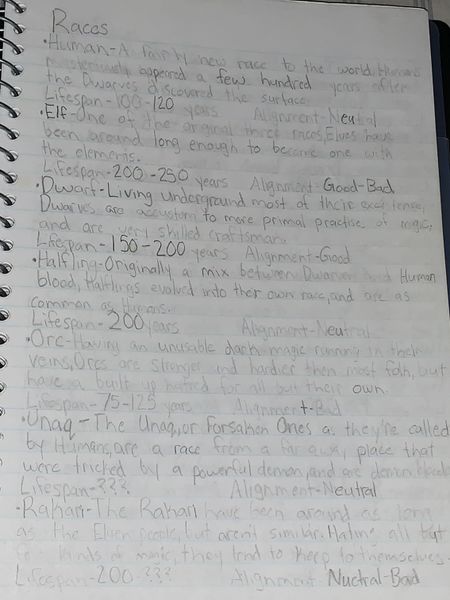 Races
•Human-A fairly new race to the world, Humans
mysteriously appeared a few hundred years after
the Dwarves discovered the surface.
Lifespan-100-120 years Alignment-Neutral
•Elf-One of the original three races, Elves have
been around long enough to become one with
the elements.
Lifespan-200-250 years Alignment-Good-Bad
•Dwarf-Living underground most of their
Dwarves are accustom to more primal practise of magic,
and are very skilled craftsman.
Lifespan-150-200 years Alignment-Good
•Halfling-Originally a mix between Dwarven And Human
blood, Halflings evolved into their own race, and are as
common as Humans.
Lifespan-200 years Alignment-Neutral
•Orc-Having an unusable dark magic running in their
veins, Orcs are stronger and hardier then most folk, but
have a built up hatred for all but their own.
Lifespan-75-125 years Alignment-Bad
•Unaq-The Unaq, or Forsaken Ones as they're called
by Humans, are a race from a far away place that
were tricked by a powerful demon, and are demon
Lifespan-??? Alignment-Neutral
•Rahari-The Rahari have been around as long
as the Elven people, but aren't similar. Hating all but
kinds of magic, they tend to keep to themselves.
Lifespan-200-??? Alignment-Nuetral-Bad